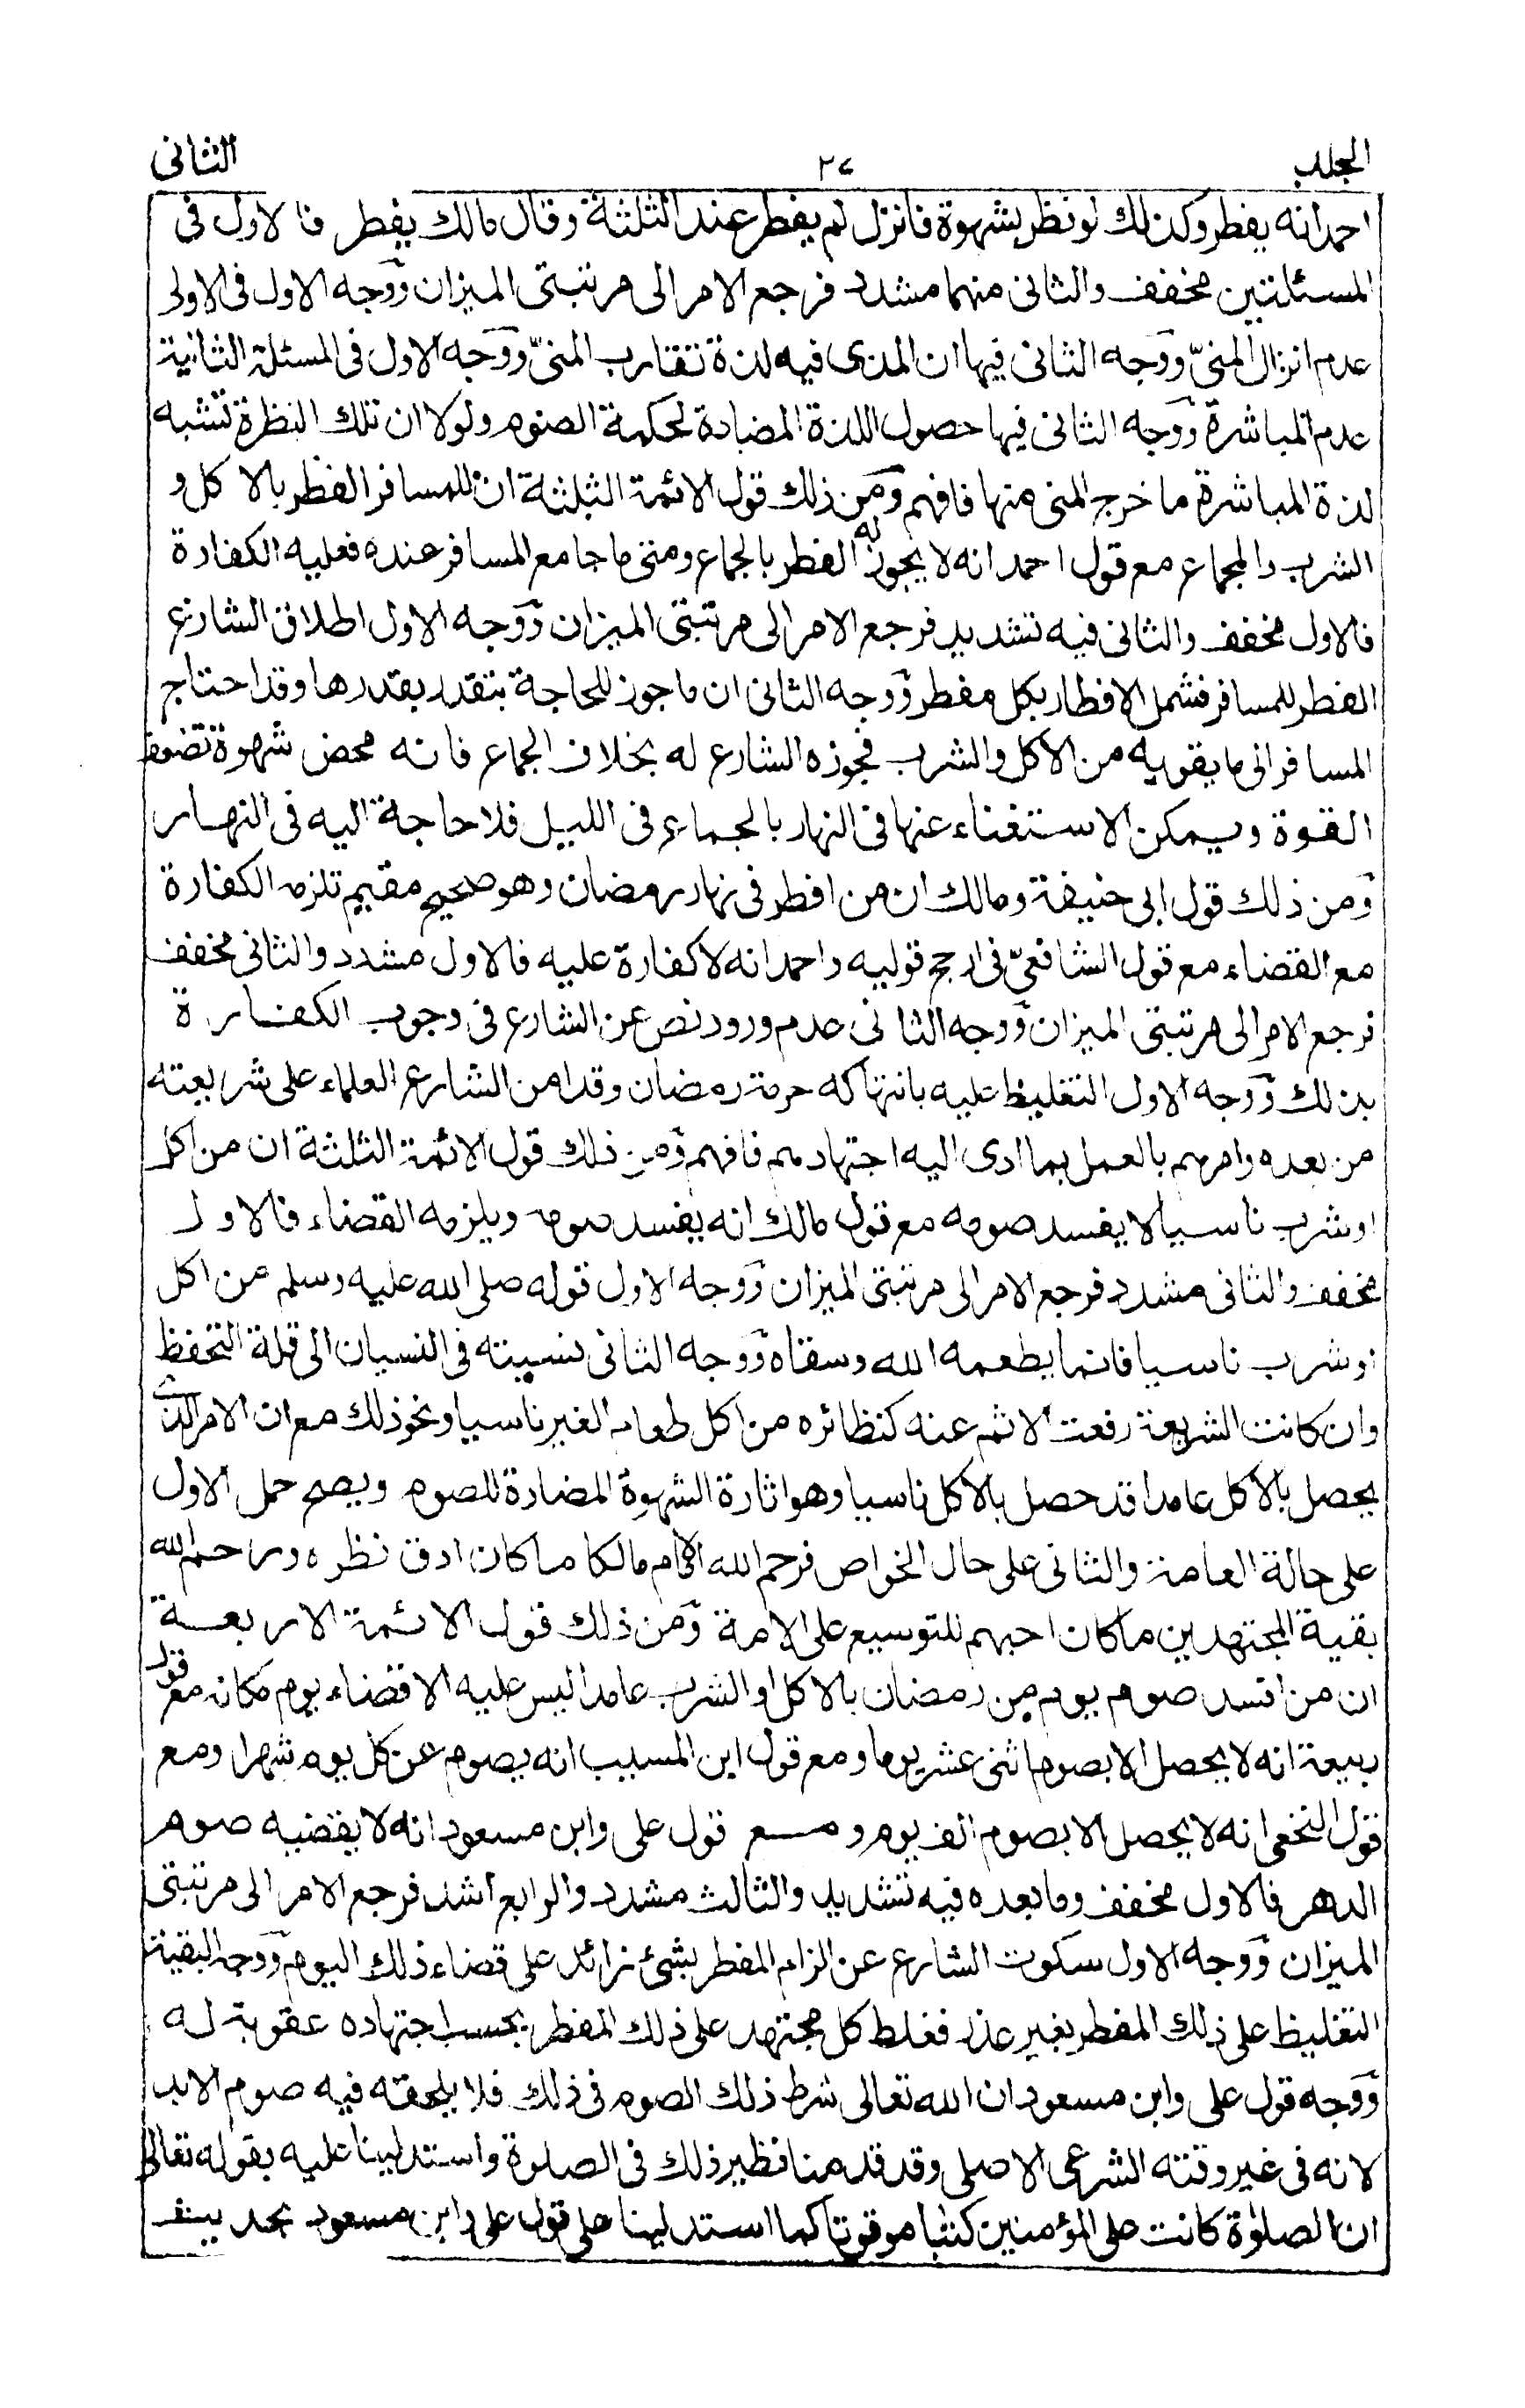 الجلد ٢٧ الثانى
احمد انه يفطر وكذلك لو نظر بشهوة فانزل لم يفطر عند الثلثة وقال مالك يفطر فالاول فى
المسئلتين مخفف والثانى منهما مشدد فرجع الامر الى مرتبتى الميزان ووجه الاول فى الاولى
عدم انزال المنىّ ووجه الثانى فيها ان المذى فيه لذة تقارب المنىّ ووجه الاول فى المسئلة الثانية
عدم المباشرة ووجه الثانى فيها حصول اللذة المضادة لحكمة الصوم ولولا ان تلك النظرة تشبه
لذة المباشرة ما خرج المنى منها فافهم ومن ذلك قول الائمة الثلثة ان للمسافر الفطر بالاكل و
الشرب والجماع مع قول احمد انه لا يجوز له الفطر بالجماع ومتى ما جامع المسافر عنده فعليه الكفارة
فالاول مخفف والثانى فيه تشديد فرجع الامر الى مرتبتى الميزان ووجه الاول اطلاق الشارع
الفطر للمسافر فشمل الافطار بكل مفطر ووجه الثانى ان ما جوز للحاجة يتقدر بقدرها وقد احتاج
المسافر الى ما يقويه من الاكل والشرب فجوزه الشارع له بخلاف الجماع فانه محض شهوة تضعف
القوة ويمكن الاستغناء عنها فى النهار بالجماع فى الليل فلا حاجة اليه فى النهار
ومن ذلك قول ابى حنيفة ومالك ان من افطر فى نهار رمضان وهو صحيح مقيم تلزمه الكفارة
مع القضاء مع قول الشافعىّ فى ارجح قوليه واحمد انه لا كفارة عليه فالاول مشدد والثانى مخفف
فرجع الامر الى مرتبتى الميزان ووجه الثانى عدم ورود نص عن الشارع فى وجوب الكفارة
بذلك ووجه الاول التغليظ عليه بانتهاكه حرمة رمضان وقد امن الشارع العلماء على شريعته
من بعده وامرهم بالعمل بما ادى اليه اجتهادهم فافهم ومن ذلك قول الائمة الثلثة ان من اكل
او شرب ناسيا لا يفسد صومه مع قول مالك انه يفسد صومه ويلزمه القضاء فالاول
مخفف والثانى مشدد فرجع الامر الى مرتبتى الميزان ووجه الاول قوله صلى الله عليه وسلم من اكل
او شرب ناسيا فانما يطعمه الله وسقاه ووجه الثانى نسبته فى النسيان الى قلة التحفظ
وان كانت الشريعة رفعت الاثم عنه كنظائره من اكل طعام الغير ناسيا ونحو ذلك مع ان الامر الذى
يحصل بالاكل عامدا قد حصل بالاكل ناسيا وهو اثارة الشهوة المضادة للصوم ويصح حمل الاول
على حالة العامة والثانى على حال الخواص فرحم الله الامام مالكا ما كان ادق نظره ورحم الله
بقية المجتهدين ما كان احبهم للتوسيع على الامة ومن ذلك قول الائمة الاربعة
ان من افسد صوم يوم من رمضان بالاكل او الشرب عامدا ليس عليه الا قضاء يوم مكانه مع قول
ربيعة انه لا يحصل الا بصوم اثنى عشر يوما ومع قول ابن المسيب انه يصوم عن كل يوم شهرا ومع
قول النخعى انه لا يحصل الا بصوم الف يوم ومع قول على وابن مسعود انه لا يقضيه صوم
الدهر فالاول مخفف وما بعده فيه تشديد والثالث مشدد والرابع اشد فرجع الامر الى مرتبتى
الميزان ووجه الاول سكوت الشارع عن الزام المفطر بشئ زائد على قضاء ذلك اليوم ووجه البقية
التغليظ على ذلك المفطر بغير عذر فغلط كل مجتهد على ذلك المفطر بحسب اجتهاده عقوبة له
ووجه قول على وابن مسعود ان الله تعالى شرط ذلك الصوم فى ذلك فلا يلحقه فيه صوم الابد
لانه فى غير وقته الشرعى الاصلى وقد قدمنا نظير ذلك فى الصلوة واستدلينا عليه بقوله تعالى
ان الصلوة كانت على المؤمنين كتٰبا موقوتا كما استدلينا على قول على وابن مسعود بحديث